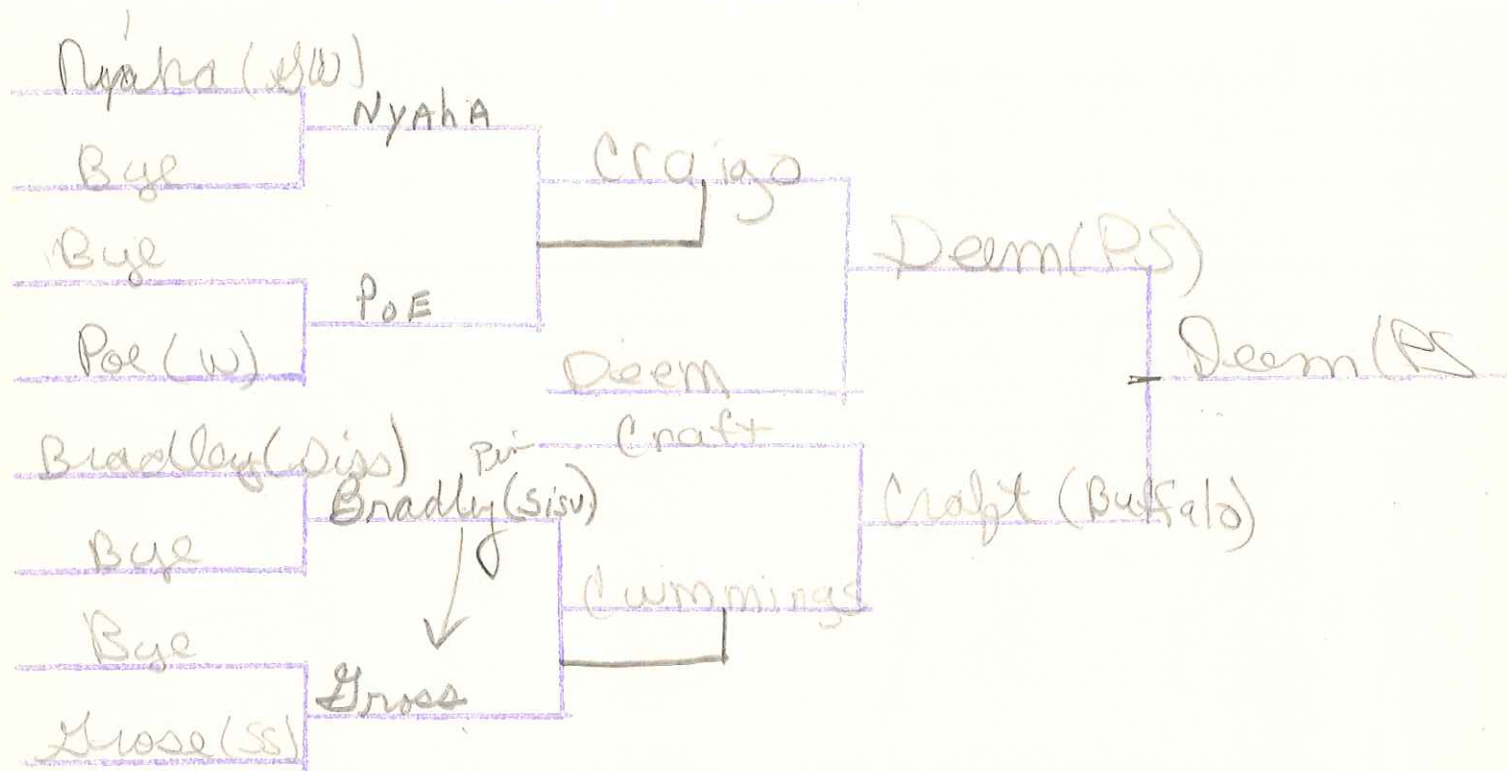 Nyaha (GW)
Bye
Bye
Poe (W)
Bradley (Siss)
Bye
Bye
Grose (SS)
NyAhA
PoE
Bradley (Sisv)
Gross
Craigo
Deem
Pin
Craft
Cummings
Deem (PS)
Craft (Buffalo)
Deem (PS